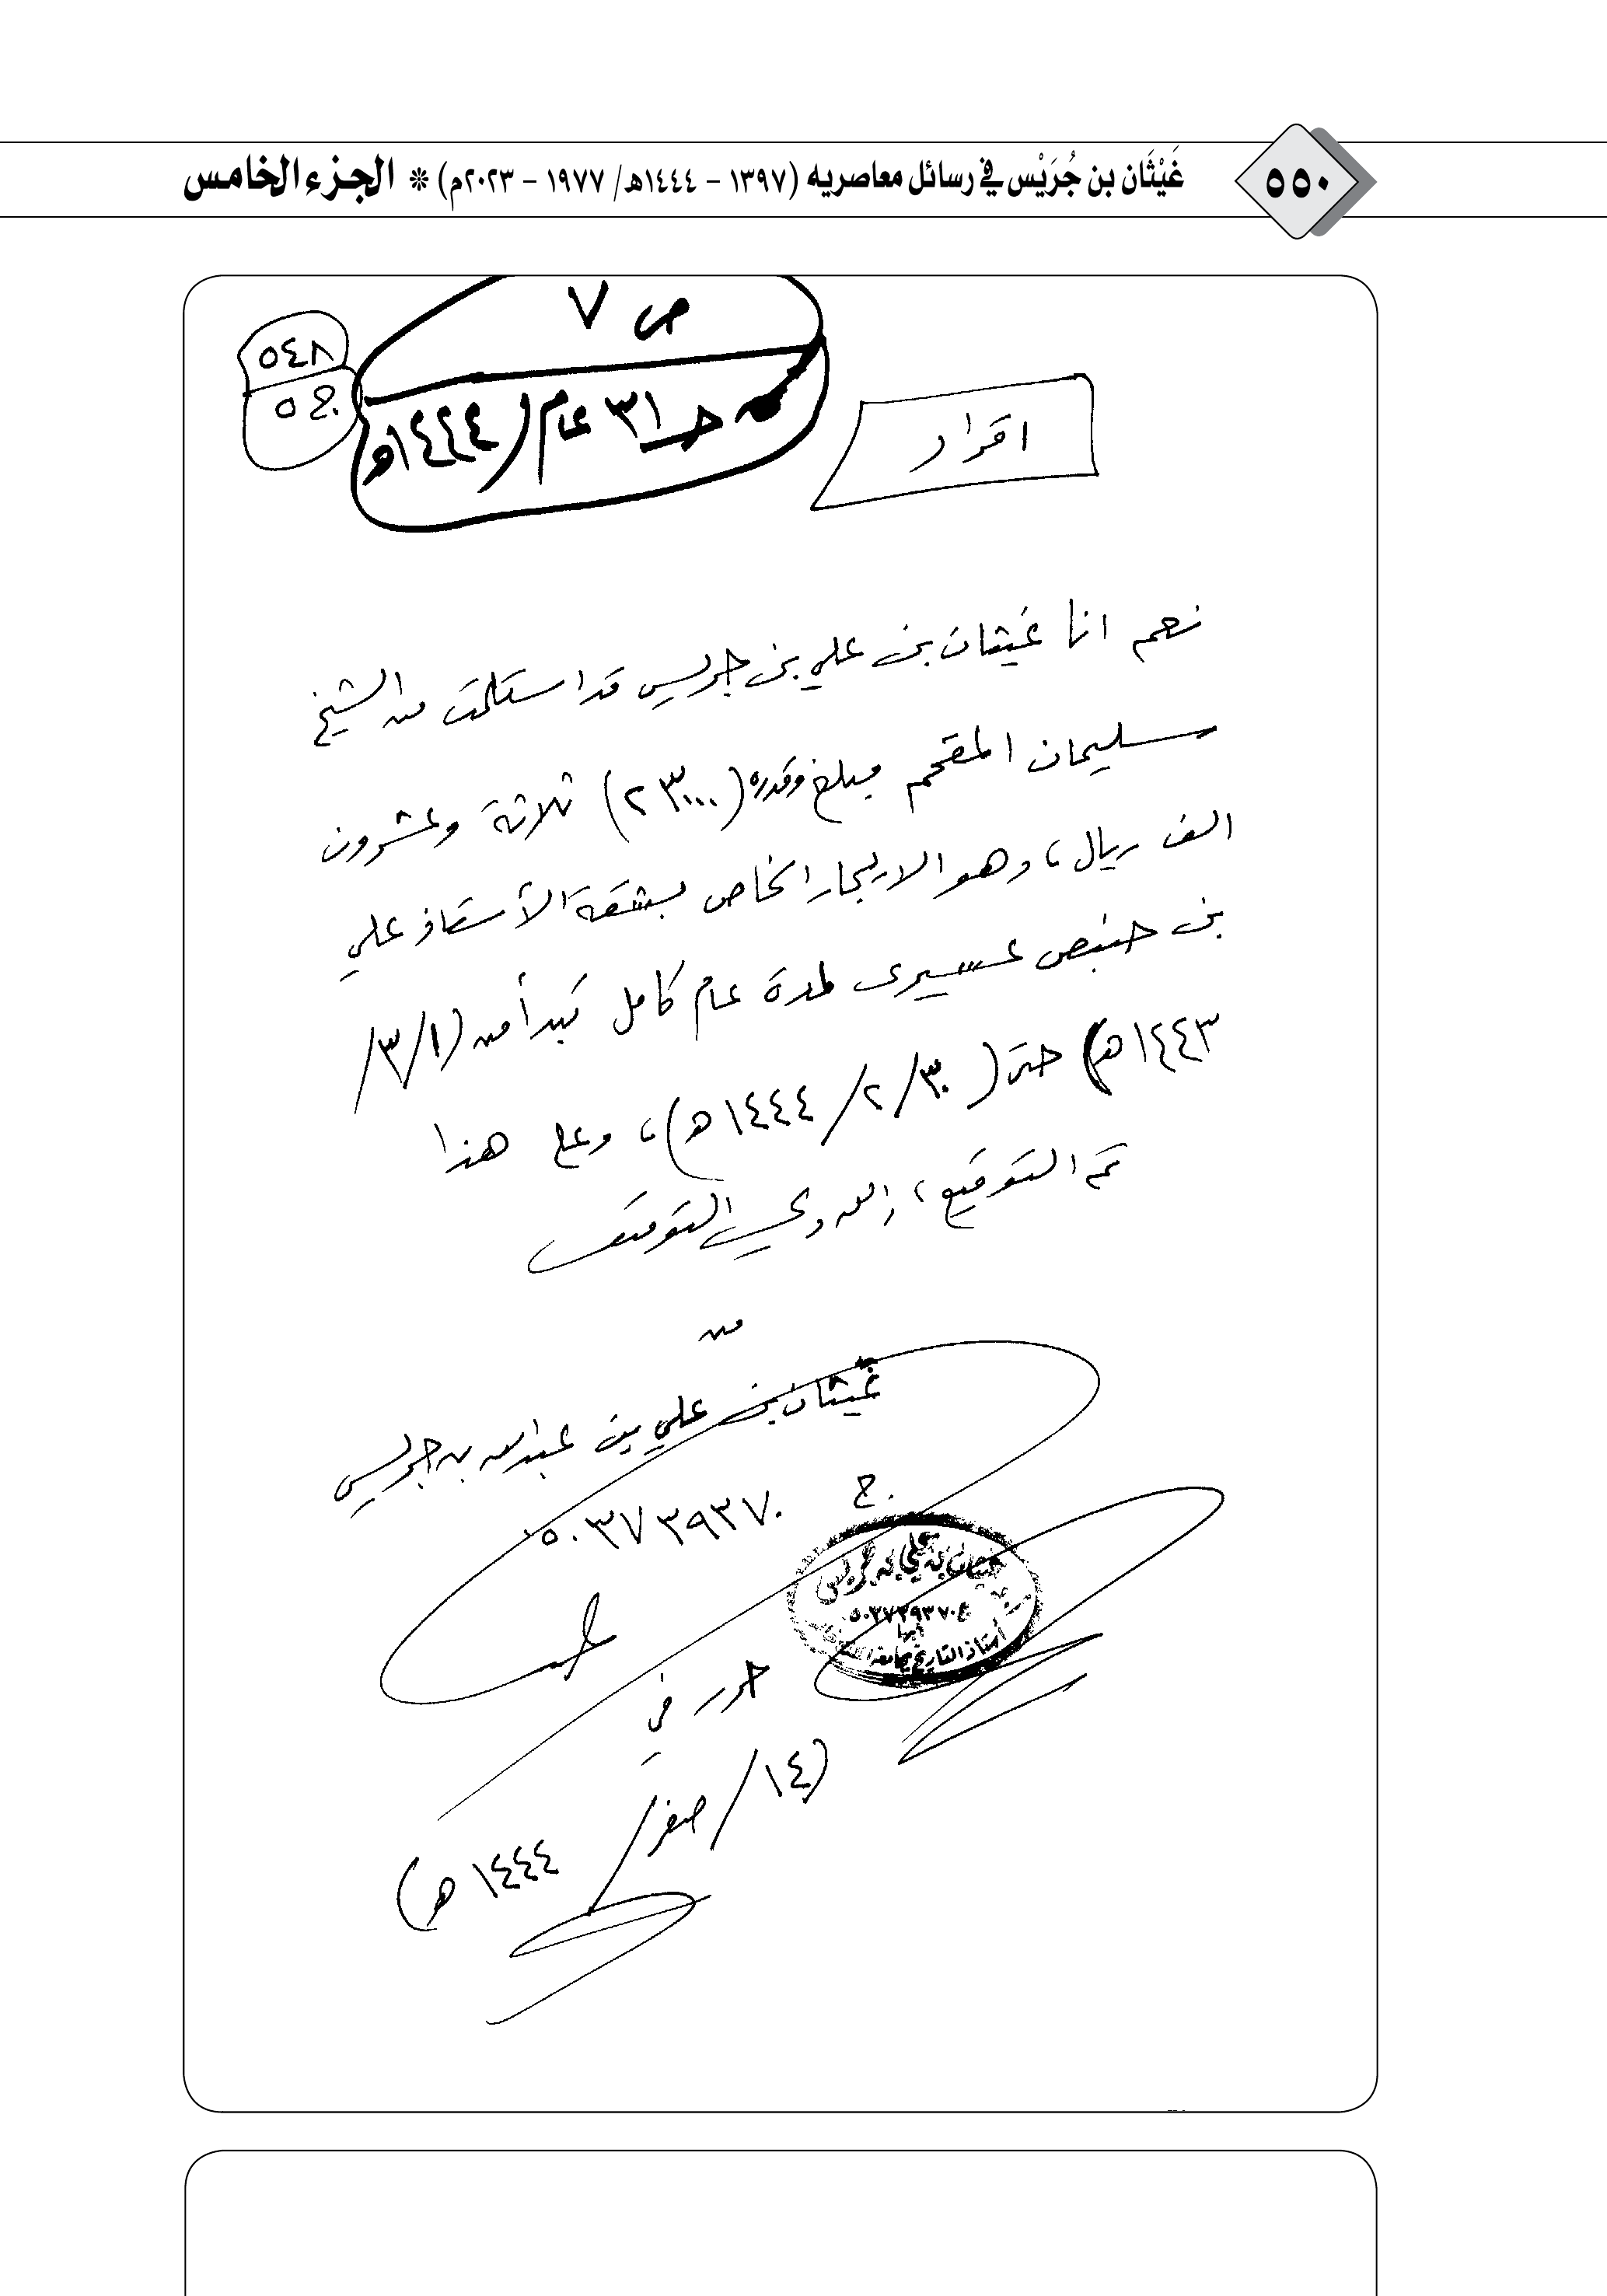 ٥٥٠
غَيْثَان بن جُرَيْس في رسائل معاصريه (١٣٩٧ - ١٤٤٤هـ/ ١٩٧٧ - ٢٠٢٣م) * الجزء الخامس
ص ٧
حـ ٣١ عام (١٤٤٤هـ
٥٤٨
ج ٥
اقرار
نعم انا غيثان بن علي بن جريس قد استلمت من الشيخ
سليمان المقحم مبلغ وقدره (٢٣٠٠٠) ثلاثة وعشرون
الف ريال، وهو الايجار الخاص بشقة الأستاذ علي
بن حنبص عسيرى لمدة عام كامل تبدأ من (٣/١/
١٤٤٣هـ) حتى (٢/٣٠/١٤٤٤هـ)، وعلى هذا
تم التوقيع، والله ولي التوفيق
من
غيثان بن علي بن عبدالله بن جريس
ج ٠٥٠٣٧٣٩٣٧٠
غيثان بن علي بن جريس
ج ٠٥٠٣٧٣٩٣٧٠
أبها
أستاذ التاريخ بجامعة
حرر في
(١٤/صفر/١٤٤٤هـ)